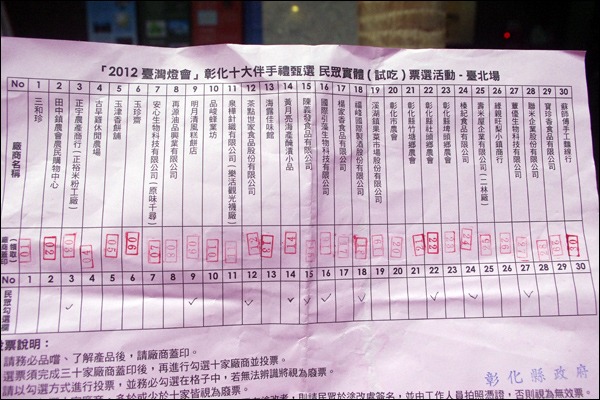 「2012 臺灣燈會」彰化十大伴手禮甄選 民眾實體(試吃)票選活動 - 臺北場
No 1 2 3 4 5 6 7 8 9 10 11 12 13 14 15 16 17 18 19 20 21 22 23 24 25 26 27 28 29 30
廠商名稱
三和珍
田中鎮農會農民購物中心
正宇農產商行(正裕米粉工廠)
古早雞休閒農場
玉津香餅舖
玉珍齋
安心生物科技有限公司(原味千尋)
再源油品興業有限公司
明月清風糕餅店
品峻蜂業坊
泉樺針織有限公司(樂活觀光襪廠)
茶點世家食品股份有限公司
海露佳味館
黃月亮海產醃漬小品
陳義發食品有限公司
國際引藻生物科技有限公司
楊家香食品有限公司
福峰國際製酒股份有限公司
溪湖鎮果菜市場股份有限公司
彰化市農會
彰化縣竹塘鄉農會
彰化縣社頭鄉農會
彰化縣埤頭鄉農會
榛紀食品有限公司
壽米屋企業有限公司(二林廠)
綠親旺梨小鎮商行
蕈優生物科技有限公司
聯米企業股份有限公司
寶珍香食品有限公司
蘇師傅手工麵線行
廠商蓋印
(領取)
No 1 2 3 4 5 6 7 8 9 10 11 12 13 14 15 16 17 18 19 20 21 22 23 24 25 26 27 28 29 30
民眾勾選欄
投票說明:
請務必品嚐、了解產品後,請廠商蓋印。
選票須完成三十家廠商蓋印後,再進行勾選十家廠商並投票。
請以勾選方式進行投票,並務必勾選在格子中,若無法辨識將視為廢票。
多於或少於十家皆視為廢票。
則請民眾於塗改處簽名,並由工作人員拍照憑證,否則視為無效票。
彰化縣政府